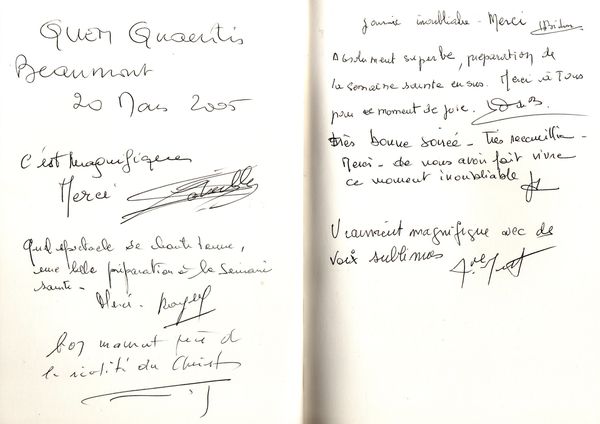 QUEM Quaeritis
Beaumont
20 Mars 2005
C'est Magnifique
Merci
Quel spectacle de haute tenue,
une belle préparation à la Semaine
sainte -
Merci -
bon moment près d
la réalité du Christ
Journée inoubliable - Merci
Absolument superbe, préparation de
la semaine sainte en sus. Merci à Tous
pour ce moment de joie.
Très bonne soirée - Très recueillie -
Merci - de nous avoir fait vivre
ce moment inoubliable
Vraiment magnifique avec de
voix sublimes